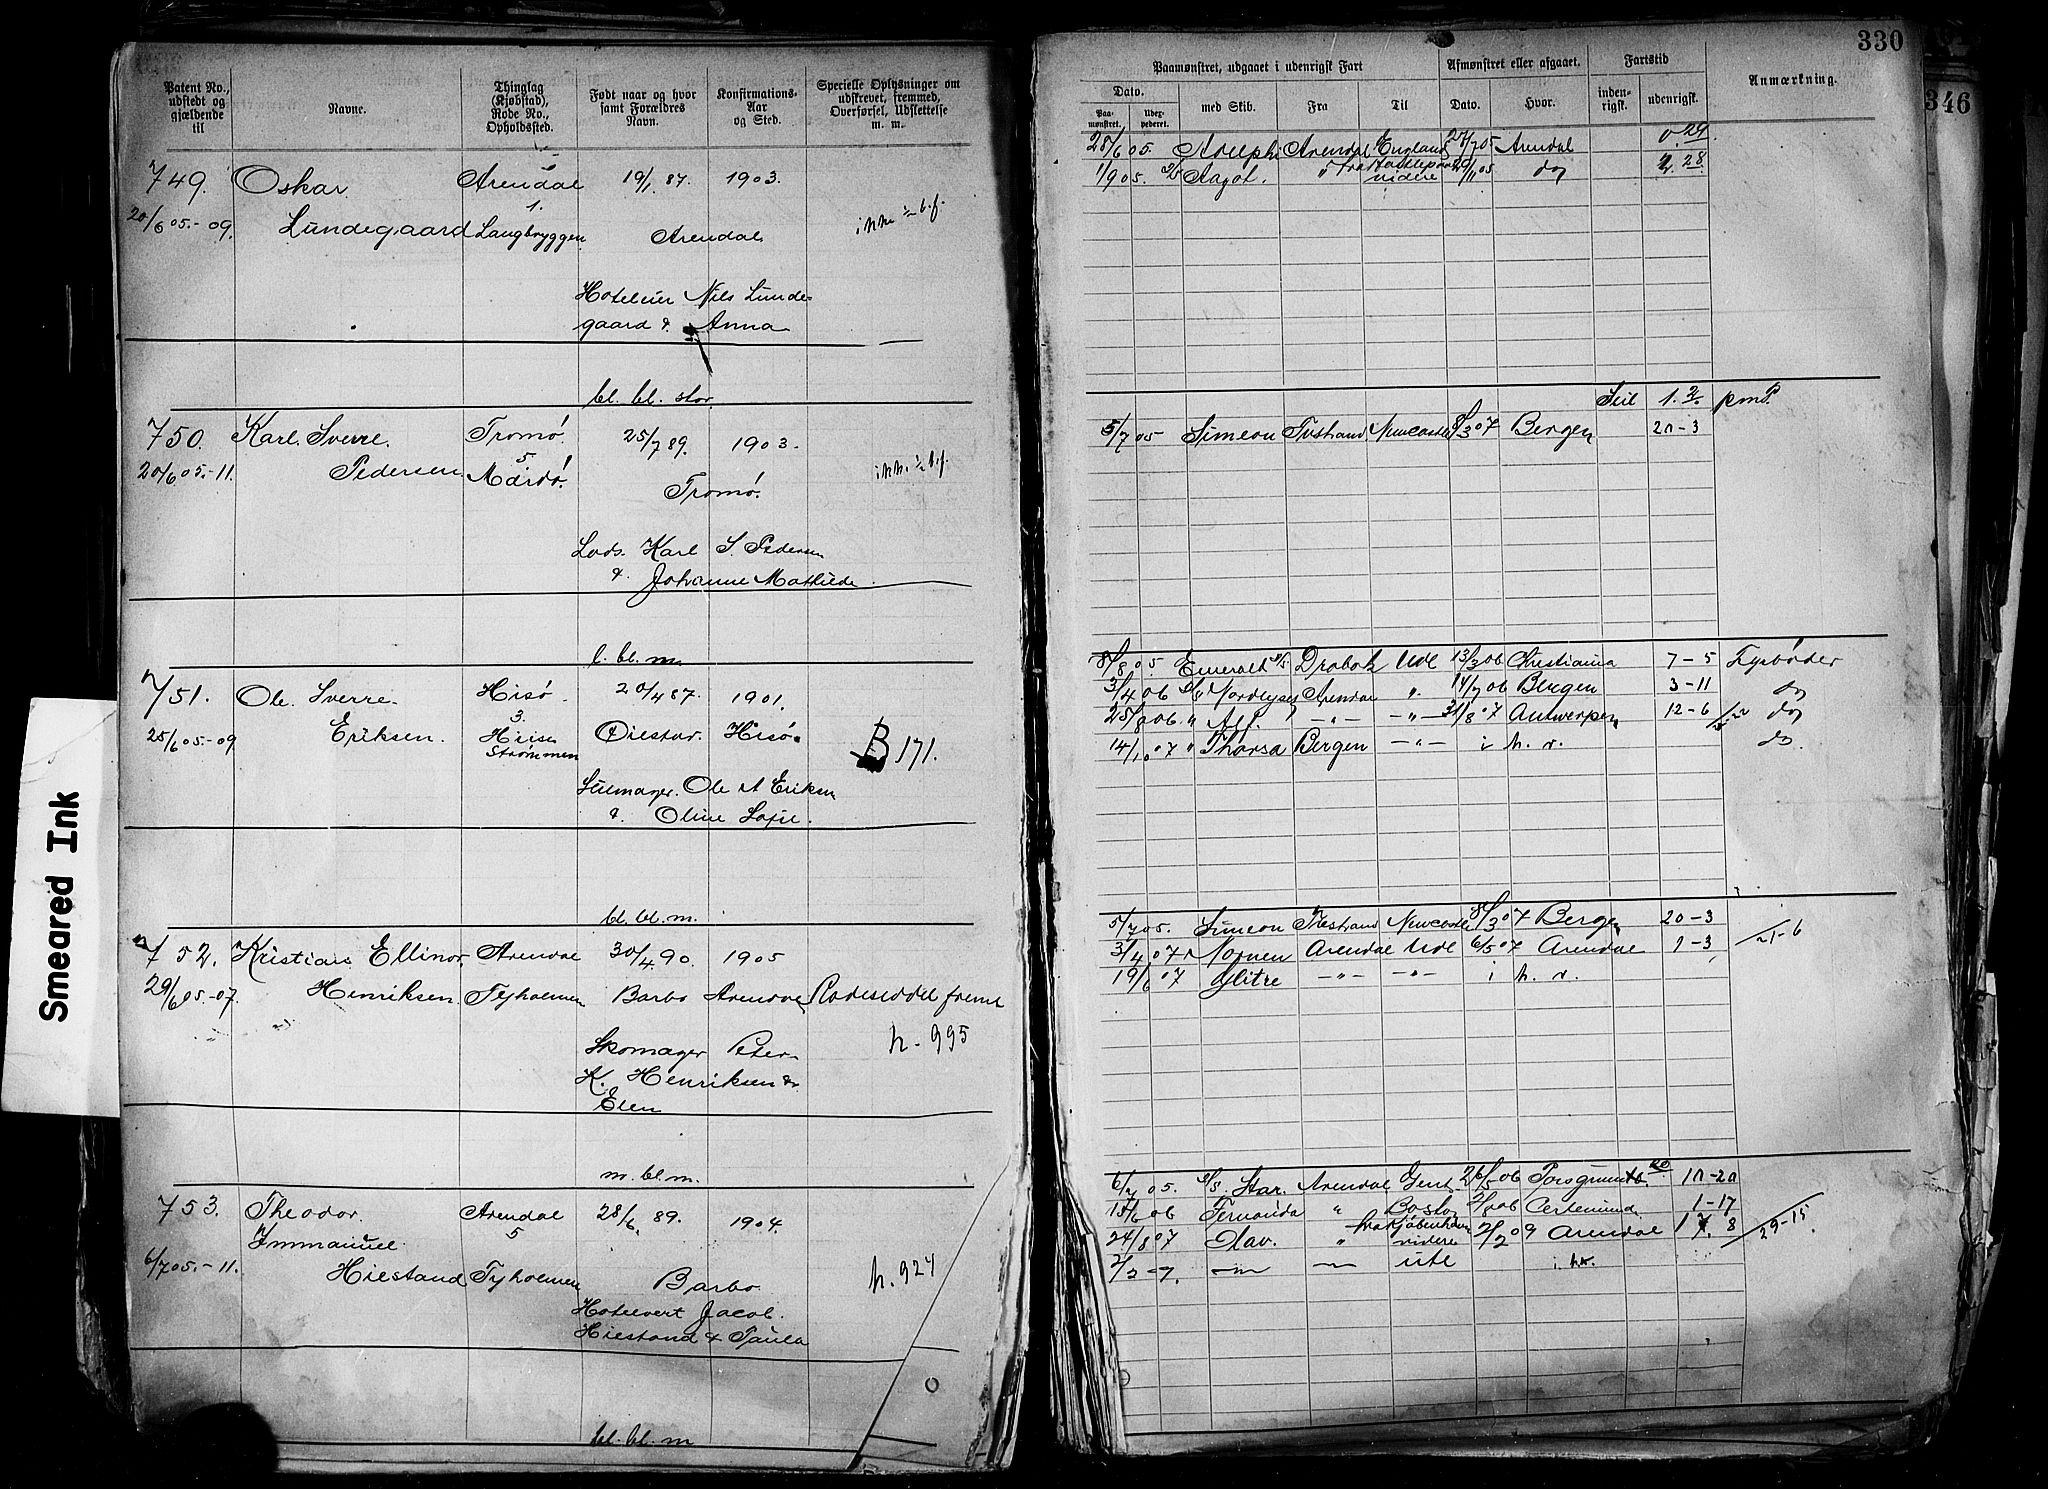 330
346
Smeared Ink
Patent No., udstedt og gjældende til
Navne.
Thinglag (Kjøbstad), Rode No., Opholdssted.
Født naar og hvor samt Forældres Navn.
Konfirmations-Aar og Sted.
Specielle Oplysninger om udskrevet, fremmed, Overførsel, Udslettelse m. m.
Paamønstret, udgaaet i udenrigsk Fart
Afmønstret eller afgaaet.
Fartstid
Anmærkning.
Dato.
Paa-mønstret.
med Skib.
Fra
Til
Dato.
Hvor.
inden-rigsk.
udenrigsk.
749. Oskar Arendal 19/1 87. 1903.
20/6 05.-09. Lundegaard Langbryggen Arendal
1.
Hoteleier Nils Lunde-
gaard & Anna
bl. bl. stor.
28/6 05. Arendal England Arendal 0.29.
1/9 05. Aagot. " videre do 28
750. Karl Sverre. Tromø. 25/7 89. 1903.
5
20/6 05.-11. Pedersen Mærdø. Tromø.
Lods. Karl S. Pedersen
& Johanne Mathilde.
l. bl. m.
Seil
5/7 05 Simeon Tvestrand Newcastle 8/3 07 Bergen 20-3
751. Ole Sverre Hisø 20/4 87. 1901.
3.
25/6 05.-09 Eriksen. Strømmen Hisø. B 171.
Seilmager. Ole A Eriksen
& Oline Sofie.
bl. bl. m.
8/8 05. Emerald Drøbak Udl 13/3 06 Christiania 7-5 Fyrbøder
3/4 06 Nordlyset Arendal ". Bergen 3-11 do
25/8 06. " Alf -"- -"- 31/8 07 Antwerpen 12-6 do
14/10 07 " Thorsa Bergen -"- i h. r. do.
752. Kristian Ellinor Arendal 30/4 90. 1905
29/6 05.-07. Henriksen Tyholmen Barbo Arendal Rodeseddel fremt
h. 995
Skomager Peter
K. Henriksen &
Elen
m. bl. m.
5/7 05. Simeon Tvestrand Newcastle 8/3 07 Bergen 20-3
3/4 07 Nornen Arendal Udl 6/5 07 Arendal 1-3 21-6
19/6 07 Glitre -"- -"- i h. r.
753. Theodor Arendal 28/6 89. 1904.
Immanuel 5
6/7 05.-11. Hiestand Tyholmen Barbo h. 924
Hotelvert Jacob
Hiestand & Paula
bl. bl. m
6/7 05. S/S Star. Arendal Gent 26/5 06 Porsgrund
15/6 06 Fernanda " Boston 1-17
24/8 07 Olav. " fra Kjøbenhavn videre 2/2 09 Arendal 29-15